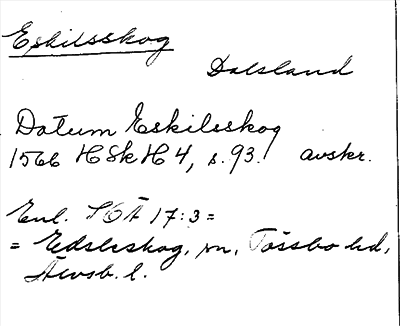 Eskilsskog
Dalsland
Datum Eskilsskog
1566 HSkH 4, s. 93. avskr.
Enl. SOÄ 17:3 =
= Edsleskog, sn, Tössbo hd,
Älvsb. l.